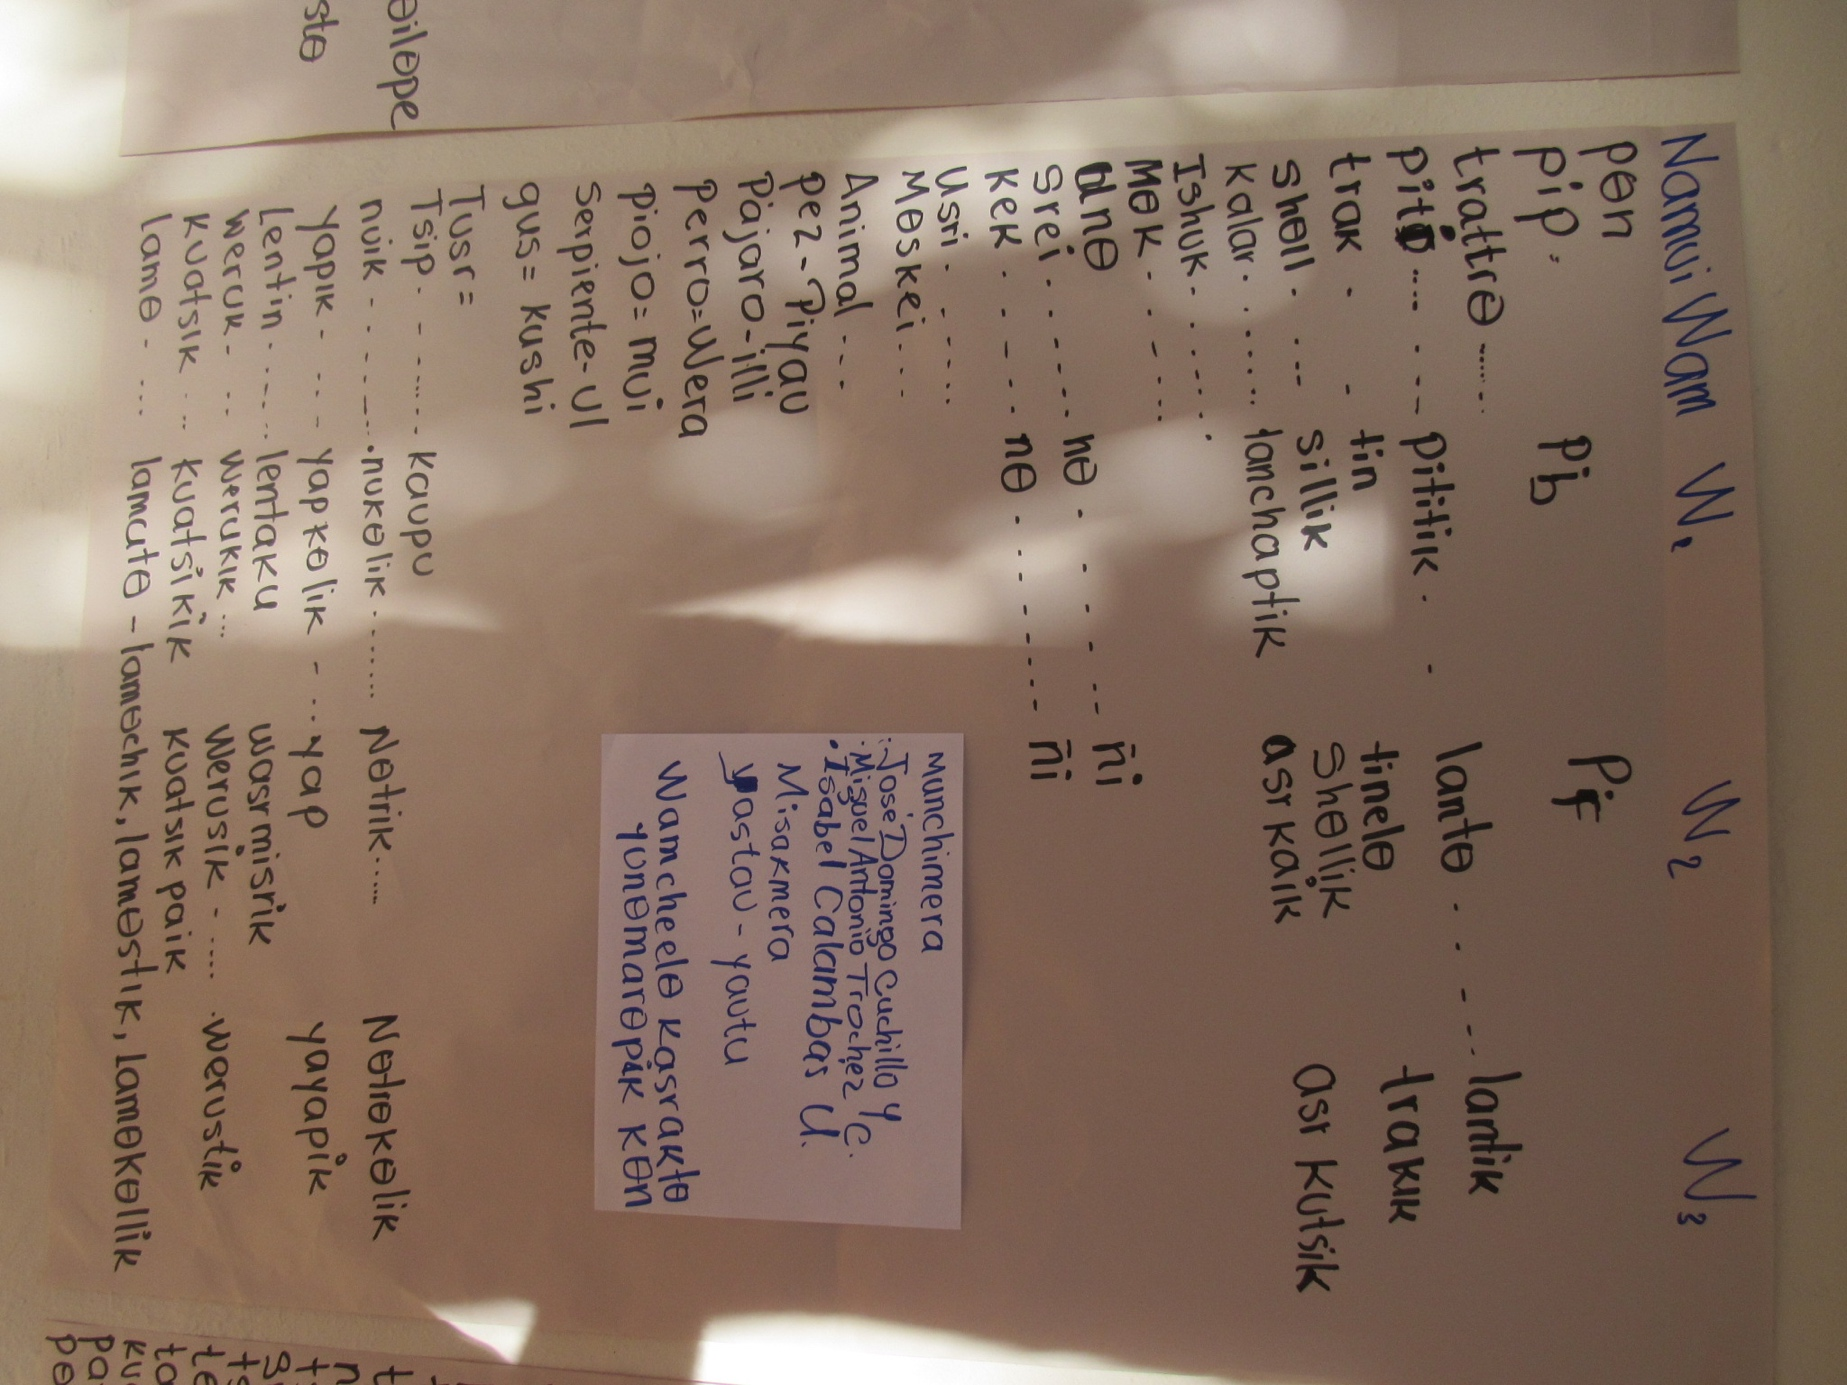 Namui Wam W1 W2 W3
pɵn
pip. Pib Pif
trattrɵ ......
pitɵ .... . - - pititik . . - lantɵ . . - - - - lantik
trak . - tin tinelɵ trakik
shɵll . . -- sillik shɵllik
Kalar. ..... lanchaptik asrkaik asr kutsik
Ishuk. ......
Mɵk . - .....
unɵ
Srei . . . . - - - . . nɵ . - - - - - - - ñi
Kek . . - - - . nɵ . . . - - - - - - ñi
Usri . . .....
Mɵskei ...
Animal ...
pez - Piyau
Pájaro - illi
perro = Wera
piojo = mui
Serpiente - ul
gus = kushi
Tusr =
Tsip. - - ....... kaupu
nuik - . . - - .... nukɵlik . ...... Nɵtrik ..... Nɵtrɵkɵlik
yapik - .. - - yapkɵlik - - ... yap yayapik
Lentin. . - - ... lentaku wasrmisrik
weruk - .. werukik ... Werusik - .... werustik
kuatsik ... kuatsikik kuatsik paik
lamɵ - ... lamutɵ - lamɵchik, lamɵstik, lamɵkɵllik
Munchimera
. José Domingo Cuchillo y
. Miguel Antonio Trochez C.
. Isabel Calambas U.
Misakmera
yastau - yautu
Wamcheelɵ kasraktɵ
yunɵmarɵpik kɵn
ɵilɵpe
stɵ